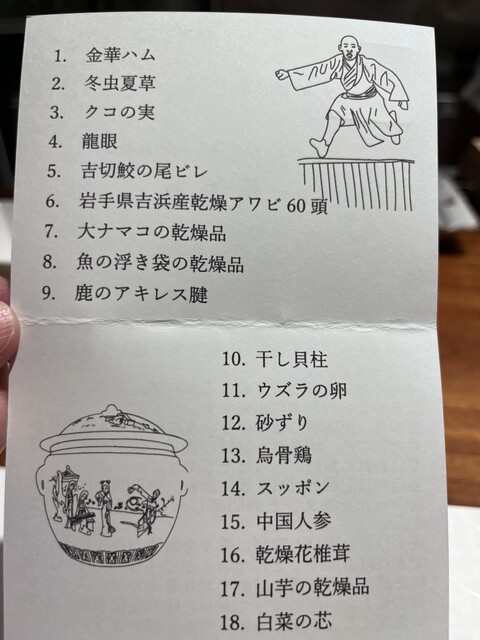 1. 金華ハム
2. 冬虫夏草
3. クコの実
4. 龍眼
5. 吉切鮫の尾ビレ
6. 岩手県吉浜産乾燥アワビ 60 頭
7. 大ナマコの乾燥品
8. 魚の浮き袋の乾燥品
9. 鹿のアキレス腱
10. 干し貝柱
11. ウズラの卵
12. 砂ずり
13. 烏骨鶏
14. スッポン
15. 中国人参
16. 乾燥花椎茸
17. 山芋の乾燥品
18. 白菜の芯